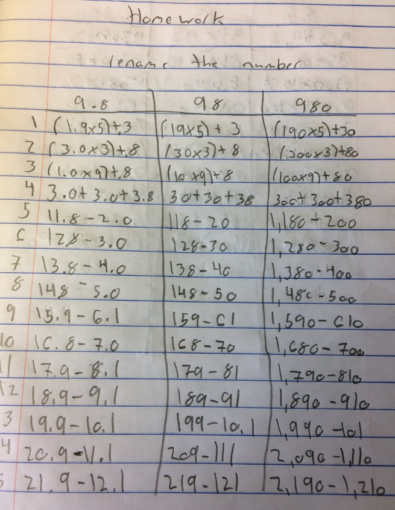 Homework
rename the number
9.8 98 980
1 (1.9x5)+.3 (19x5) + 3 (190x5)+30
2 (3.0x3)+.8 (30x3) + 8 (300x3)+80
3 (1.0x9)+.8 (10x9)+8 (100x9)+80
4 3.0+3.0+3.8 30+30+38 300+300+380
5 11.8-2.0 118-20 1,180-200
6 12.8-3.0 128-30 1,280-300
7 13.8-4.0 138-40 1,380-400
8 14.8-5.0 148-50 1,480-500
9 15.9-6.1 159-61 1,590-610
10 16.8-7.0 168-70 1,680-700
11 17.9-8.1 179-81 1,790-810
12 18.9-9.1 189-91 1,890-910
3 19.9-10.1 199-10.1 1,990-101
4 20.9-11.1 209-111 2,090-1,110
5 21.9-12.1 219-121 2,190-1,210